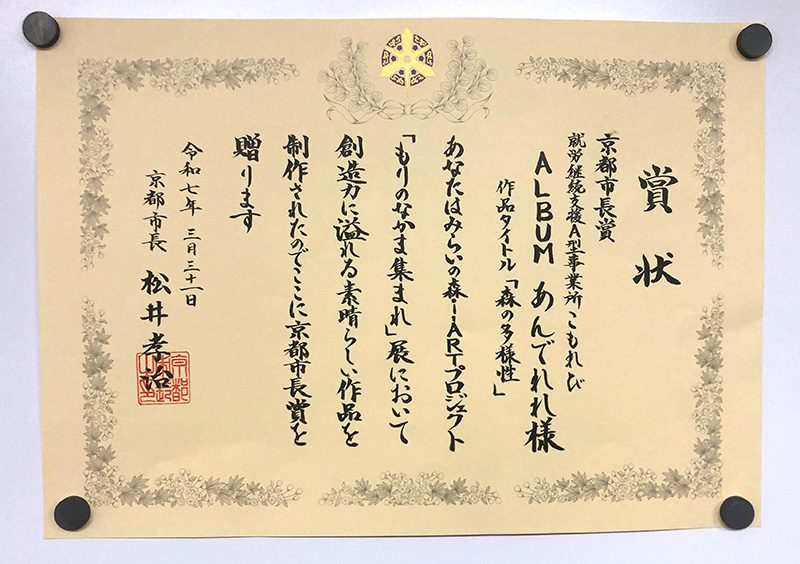 賞状
京都市長賞
就労継続支援A型事業所 こもれび
ALBUM あんでれれ様
作品タイトル「森の多様性」
あなたはみらいの森i-ARTプロジェクト
「もりのなかま集まれ」展において
創造力に溢れる素晴らしい作品を
制作されたのでここに京都市長賞を
贈ります
令和七年 三月三十一日
京都市長 松井孝治